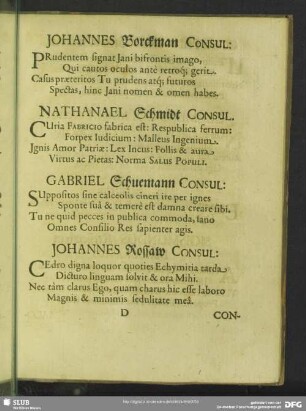 JOHANNES Borckman CONSUL:
PRudentem signat Jani bifrontis imago,
Qui cautos oculos antè retroq; gerit.
Casus præteritos Tu prudens atq; futuros
Spectas, hinc Jani nomen & omen habes.
NATHANAEL Schmidt CONSUL.
CUria FABRICIO fabrica est: Respublica ferrum:
Forpex Iudicium: Malleus Ingenium.
Jgnis Amor Patriæ: Lex Incus: Follis & aura
Virtus ac Pietas: Norma SALUS POPULI.
GABRIEL Schuemann CONSUL:
SUppositos sine calceolis cineri ire per ignes
Sponte suâ & temerè est damna creare sibi.
Tu ne quid pecces in publica commoda, sano
Omnes Consilio Res sapienter agis.
JOHANNES Rossaw CONSUL:
CEdro digna loquor quoties Echymitia tarda
Dicturo linguam solvit & ora Mihi.
Nec tàm clarus Ego, quam charus hic esse laboro
Magnis & minimis sedulitate meâ.
D CON-
SLUB
DFG